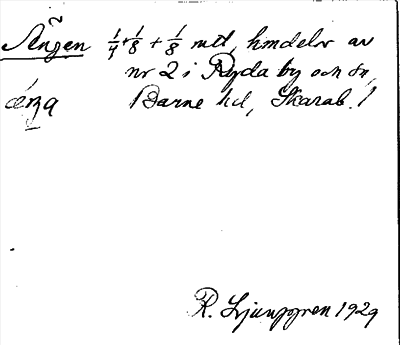 Ängen 1/4 + 1/8 + 1/8 mtl, hmdelar av
nr 2 i Ryda by och sn,
Barne hd, Skarab. l
R. Ljunggren 1929